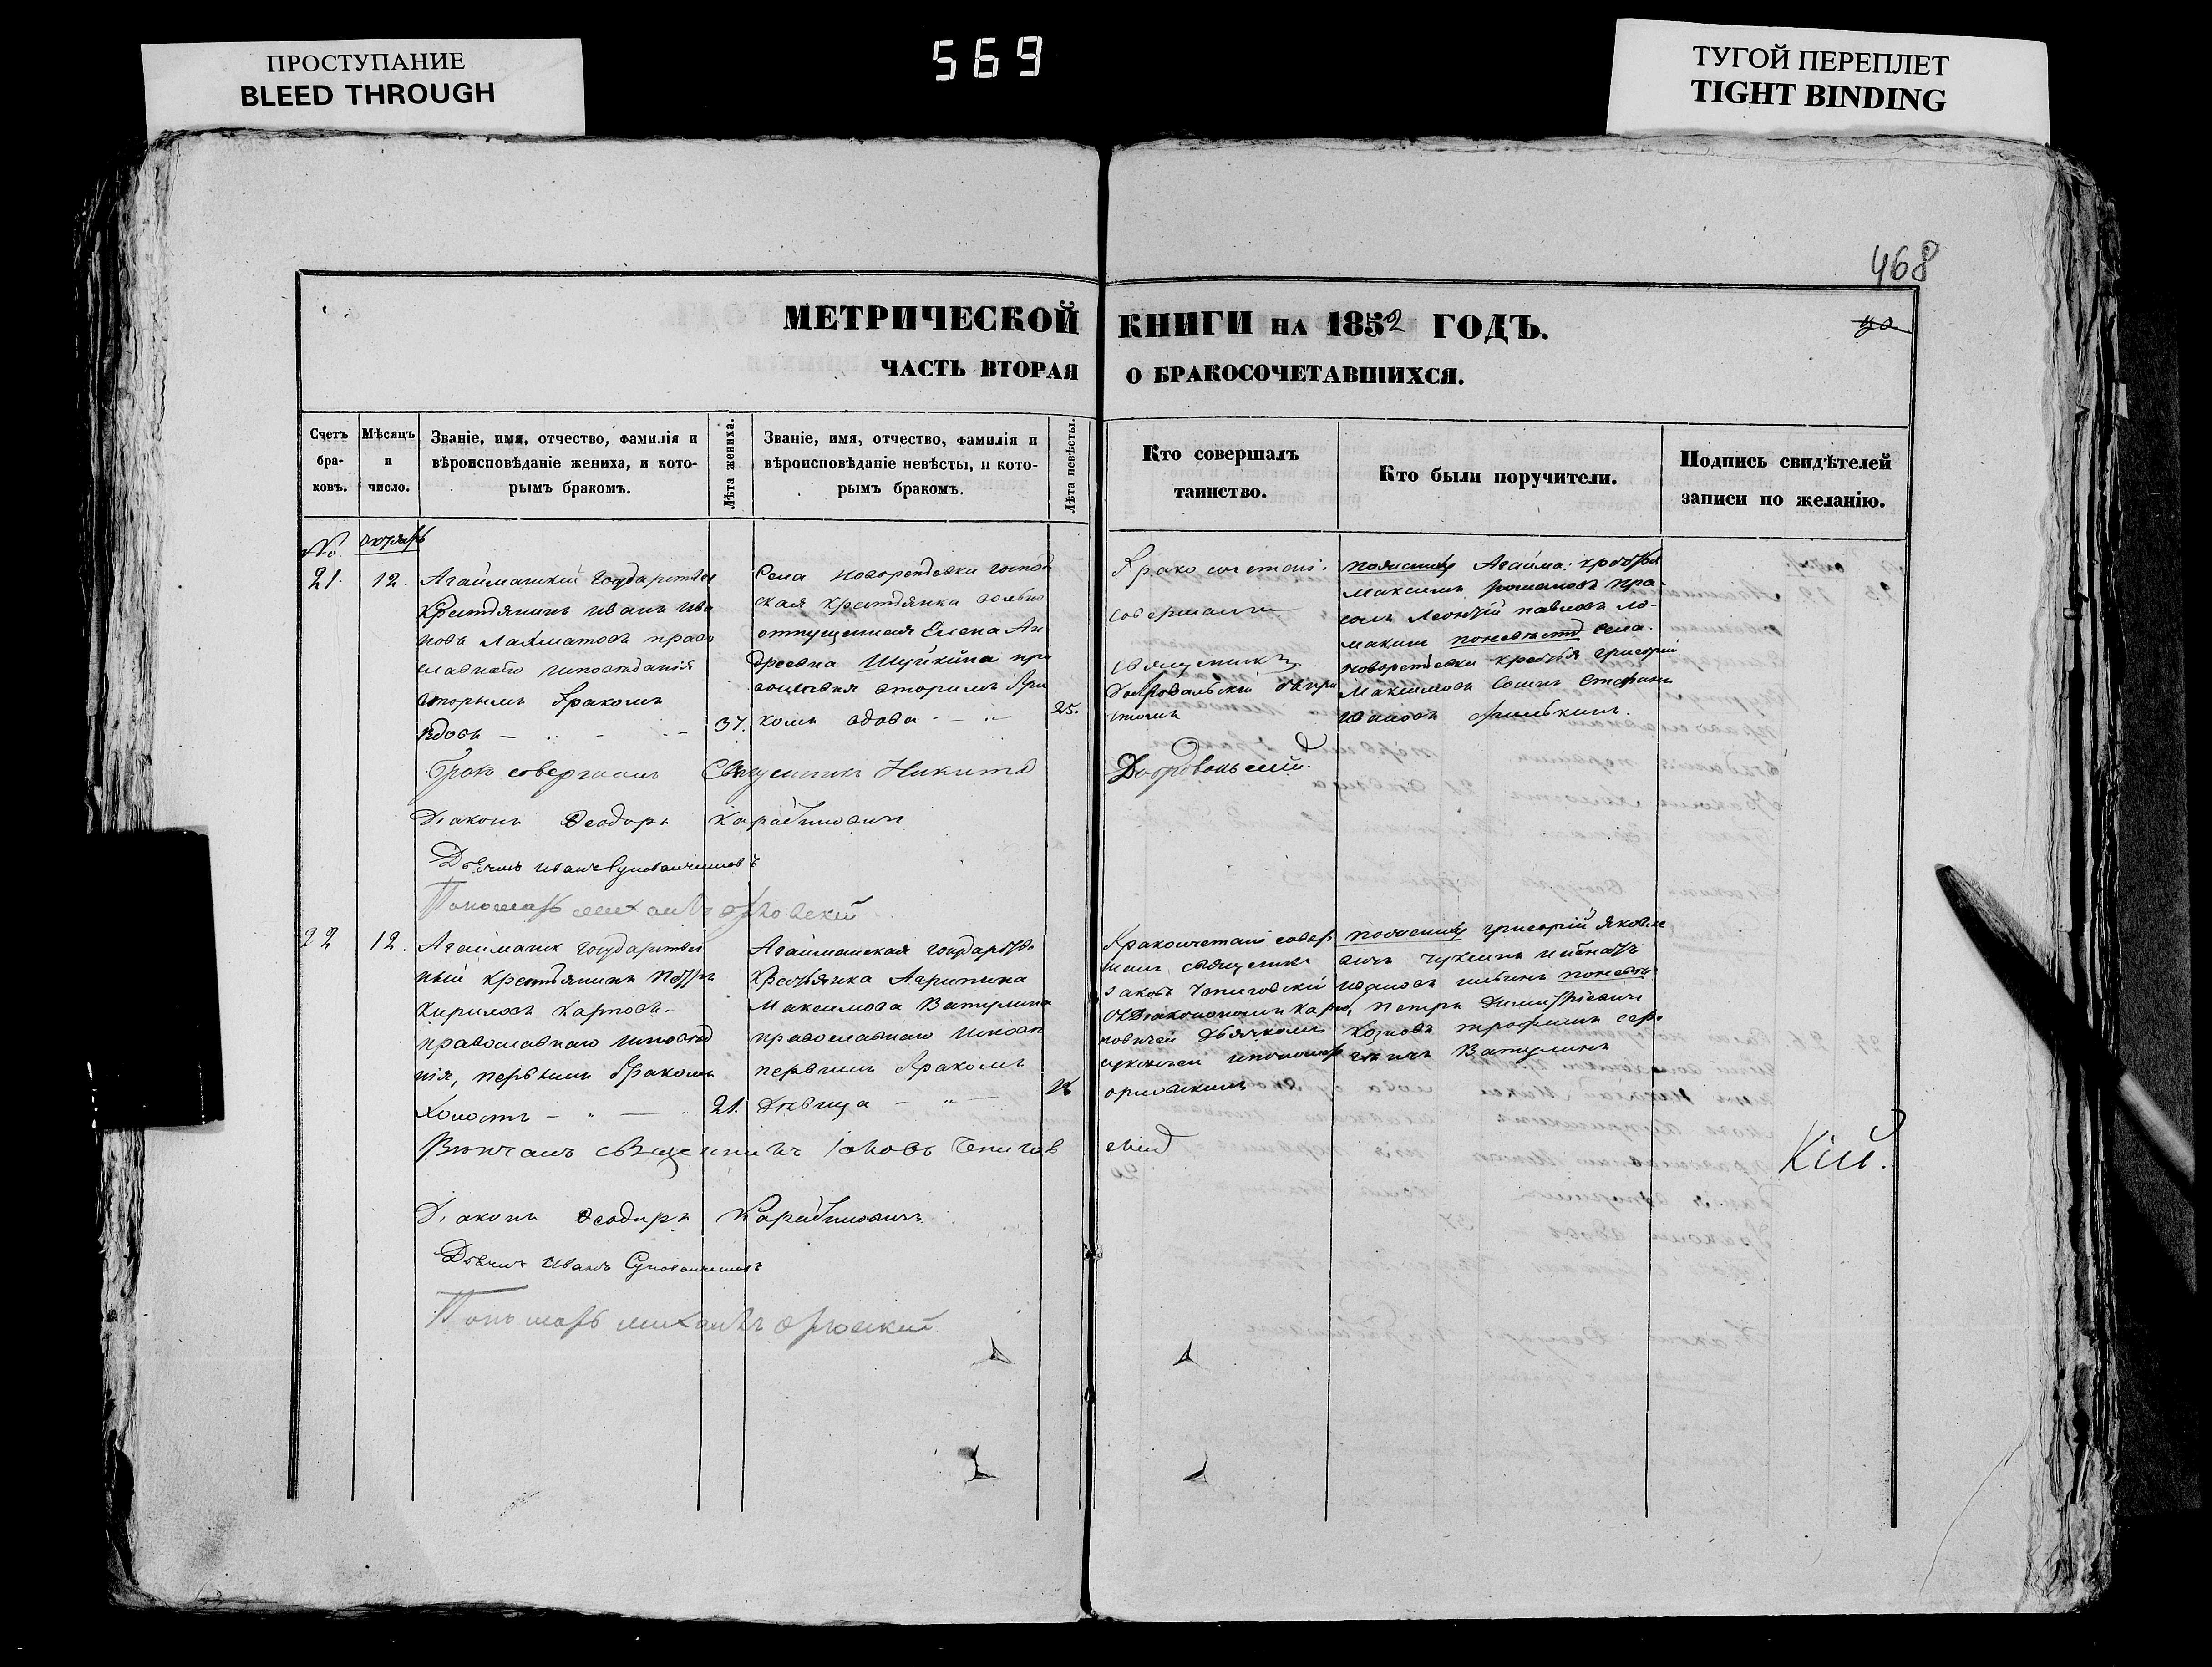 ПРОСТУПАНИЕ
BLEED THROUGH
569
ТУГОЙ ПЕРЕПЛЕТ
TIGHT BINDING
468
МЕТРИЧЕСКОЙ КНИГИ НА 1852 ГОДЪ.
ЧАСТЬ ВТОРАЯ О БРАКОСОЧЕТАВШИХСЯ.
Счетъ бра-ковъ.
Мѣсяцъ и число.
Званіе, имя, отчество, фамилія и
вѣроисповѣданіе жениха, и кото-
рымъ бракомъ.
Лѣта жениха.
Званіе, имя, отчество, фамилія и
вѣроисповѣданіе невѣсты, и кото-
рымъ бракомъ.
Лѣта невѣсты.
Кто совершалъ
таинство.
Кто были поручители.
Подпись свидѣтелей
записи по желанію.
№
октябрь
21.
12.
Агайманскій государствен
крестьянинъ Иванъ Ива
новъ Лахматовъ право
славнаго исповѣданія
вторымъ бракомъ
вдовъ
37.
Села Новорепьевки господ
ская крестьянка вольно
отпущенная Елена Ан
дреевна Шуйкина пра
вославная вторымъ бра
комъ вдова
25.
Бракосочетаніе
совершалъ
священникъ
Добровольскій
по женихѣ Агайма. кресть
Максимъ Романовъ
Леонтій Павловъ Ло-
макинъ по невѣстѣ села
Новорепьевки крестья Григорій
Максимовъ Стефанъ
Ивановъ
Бракъ совершалъ Священникъ Никита Добровольскій.
Діаконъ Ѳеодоръ Карабиновичъ
Дьячекъ Иванъ
Пономарь Михаилъ Орловскій
22
12.
Агайманск государствен
ный крестьянинъ Петръ
Кириловъ Карповъ.
православнаго исповѣда
нія, первымъ бракомъ
Холостъ
21.
Агайманская государств
крестьянка Агрипина
Максимова Ватулина
православнаго исповѣ
первымъ бракомъ
дѣвица
Бракосочетаніе совер
шалъ священникъ
Іаковъ Чепиговскій
съ Діакономъ Караби
новичемъ Дьячкомъ
и пономар
орловскимъ
по женихѣ Григорій Яковле
вичъ Чуклинъ и Игнатъ
Ивановъ по невѣстѣ
Петръ Димитріевичъ
Козловъ Трофимъ
Ватулинъ
Вѣнчалъ священникъ Іаковъ Чепиговскій
Кій.
Діаконъ Ѳеодоръ Карабиновичъ
Дьячекъ Иванъ
Пономарь Михаилъ Орловскій